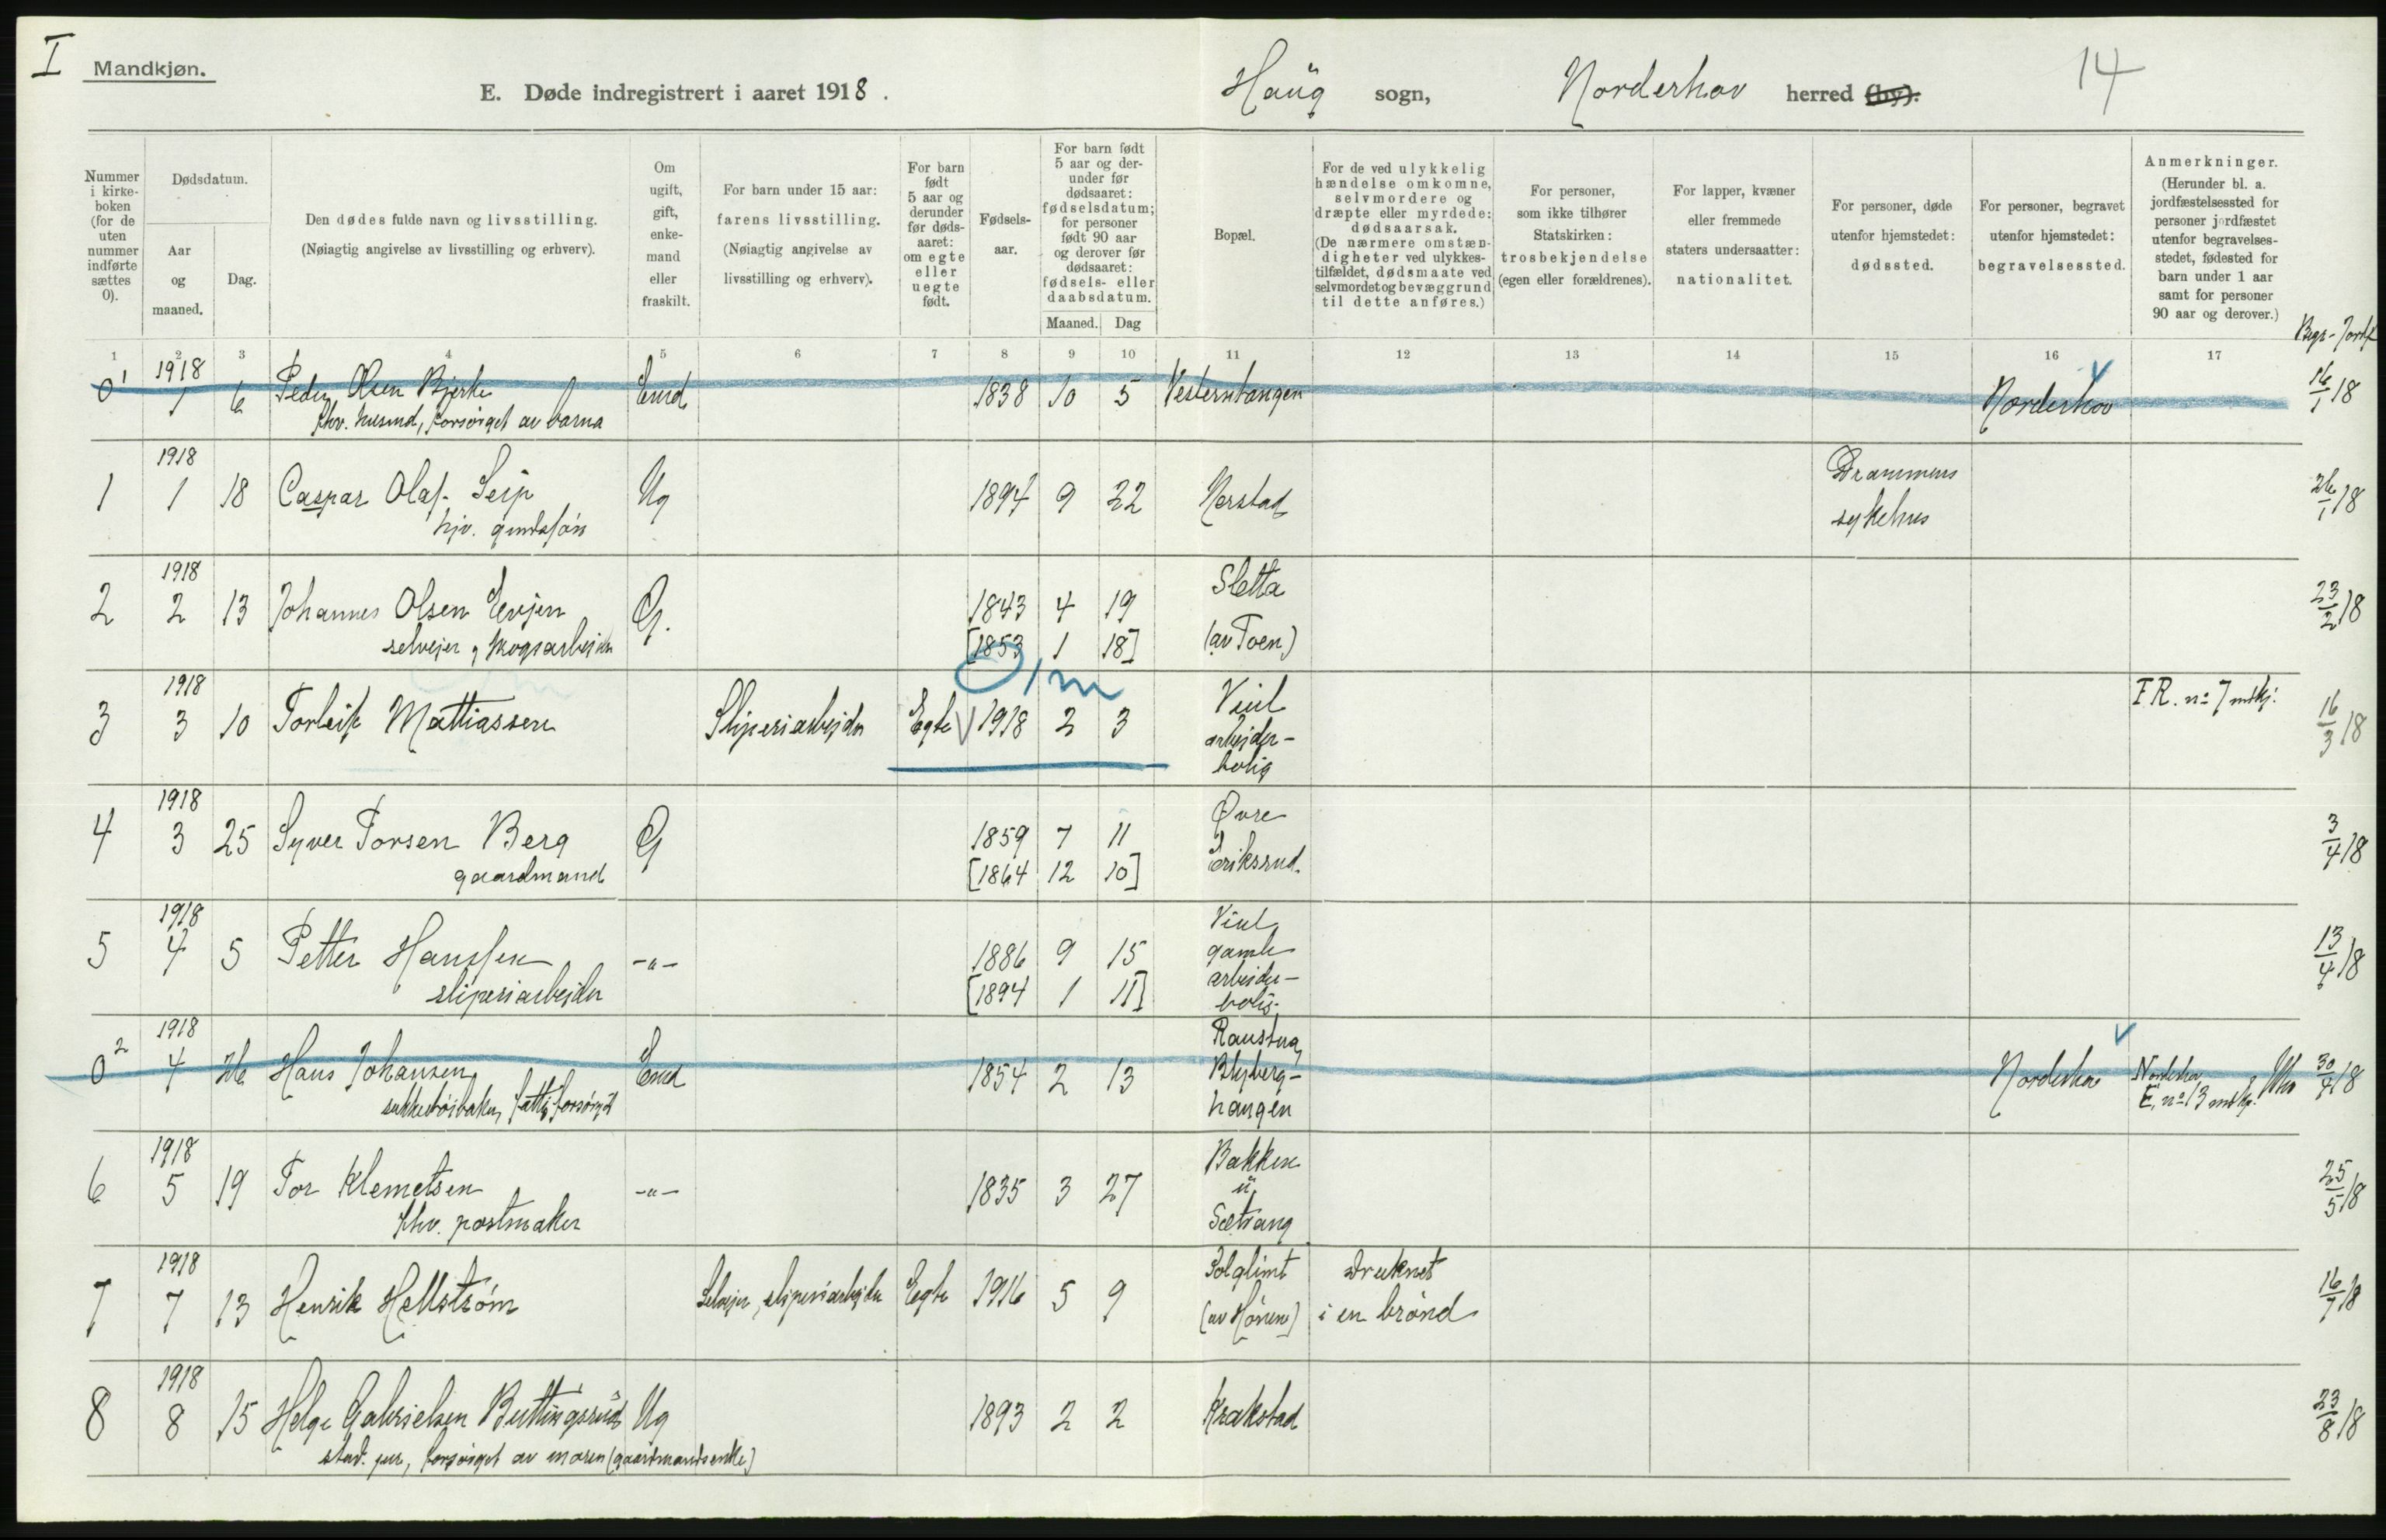 I Mandkjøn.
E. Døde indregistrert i aaret 1918. Haug sogn, Norderhov herred (by). 14
Nummer i kirkeboken (for de uten nummer indførte sættes 0).
Dødsdatum.
Aar og maaned.
Dag.
Den dødes fulde navn og livsstilling.
(Nøiagtig angivelse av livsstilling og erhverv).
Om ugift, gift, enkemand eller fraskilt.
For barn under 15 aar: farens livsstilling.
(Nøiagtig angivelse av livsstilling og erhverv).
For barn født 5 aar og derunder før dødsaaret: om egte eller uegte født.
Fødselsaar.
For barn født 5 aar og derunder før dødsaaret: fødselsdatum; for personer født 90 aar og derover før dødsaaret: fødsels- eller daabsdatum.
Maaned. Dag
Bopæl.
For de ved ulykkelig hændelse omkomne, selvmordere og dræpte eller myrdede: dødsaarsak.
(De nærmere omstændigheter ved ulykkestilfældet, dødsmaate ved selvmordet og bevæggrund til dette anføres.)
For personer, som ikke tilhører Statskirken: trosbekjendelse (egen eller forældrenes).
For lapper, kvæner eller fremmede staters undersaatter: nationalitet.
For personer, døde utenfor hjemstedet: dødssted.
For personer, begravet utenfor hjemstedet: begravelsessted.
Anmerkninger.
(Herunder bl. a. jordfæstelsessted for personer jordfæstet utenfor begravelsesstedet, fødested for barn under 1 aar samt for personer 90 aar og derover.)
Begr-Jordf
1 2 3 4 5 6 7 8 9 10 11 12 13 14 15 16 17
1918
0 1 1 6 Peder Olsen Bjerke Enkd 1838 10 5 Vesterntangen Norderhov 16/1 18
fhv. husmd, forsørget av barna
1918
1 1 18 Caspar Olaf Seip Ug 1894 9 22 Nerstad Drammens sykehus 26/1 18
hjv. gmdssøn
1918
2 2 13 Johannes Olsen Evjen G. 1843 4 19 Sletta 23/2 18
selveier, skogsarbejder [1853 1 18] (av Toen)
1918
3 3 10 Torleif Mattiassen Sliperiarbejder Egte V 1918 2 3 Viul arbejder-bolig F R. no 7 mskj. 16/3 18
1918
4 3 25 Syver Torsen Berg G 1859 7 11 Øvre Eriksrud. 3/4 18
gaardmand [1864 12 10]
1918
5 4 5 Petter Hanssen -"- 1886 9 15 Viul gamle arbeider-bolig 13/4 18
sliperiarbejder [1894 1 11]
1918
0 2 4 26 Hans Johansen Enkd 1854 2 13 Raustua, Blyberg-haugen Norderhov Norderhov E, no 13 mskj. 30/4 18
1918
6 5 19 Tor Klemetsen -"- 1835 3 27 Bakken u. Sætrang 25/5 18
fhv. postmaker
1918
7 7 13 Henrik Hellstrøm Selveier, sliperiarbejder Egte 1916 5 9 Solglimt (av Hönen) Druknet i en brønd 16/7 18
1918
8 8 15 Helge Gabrielsen Buttingsrud Ug 1893 2 2 Krakstad 23/8 18
stud. jur, forsørget av moren (gaardmandsenke)